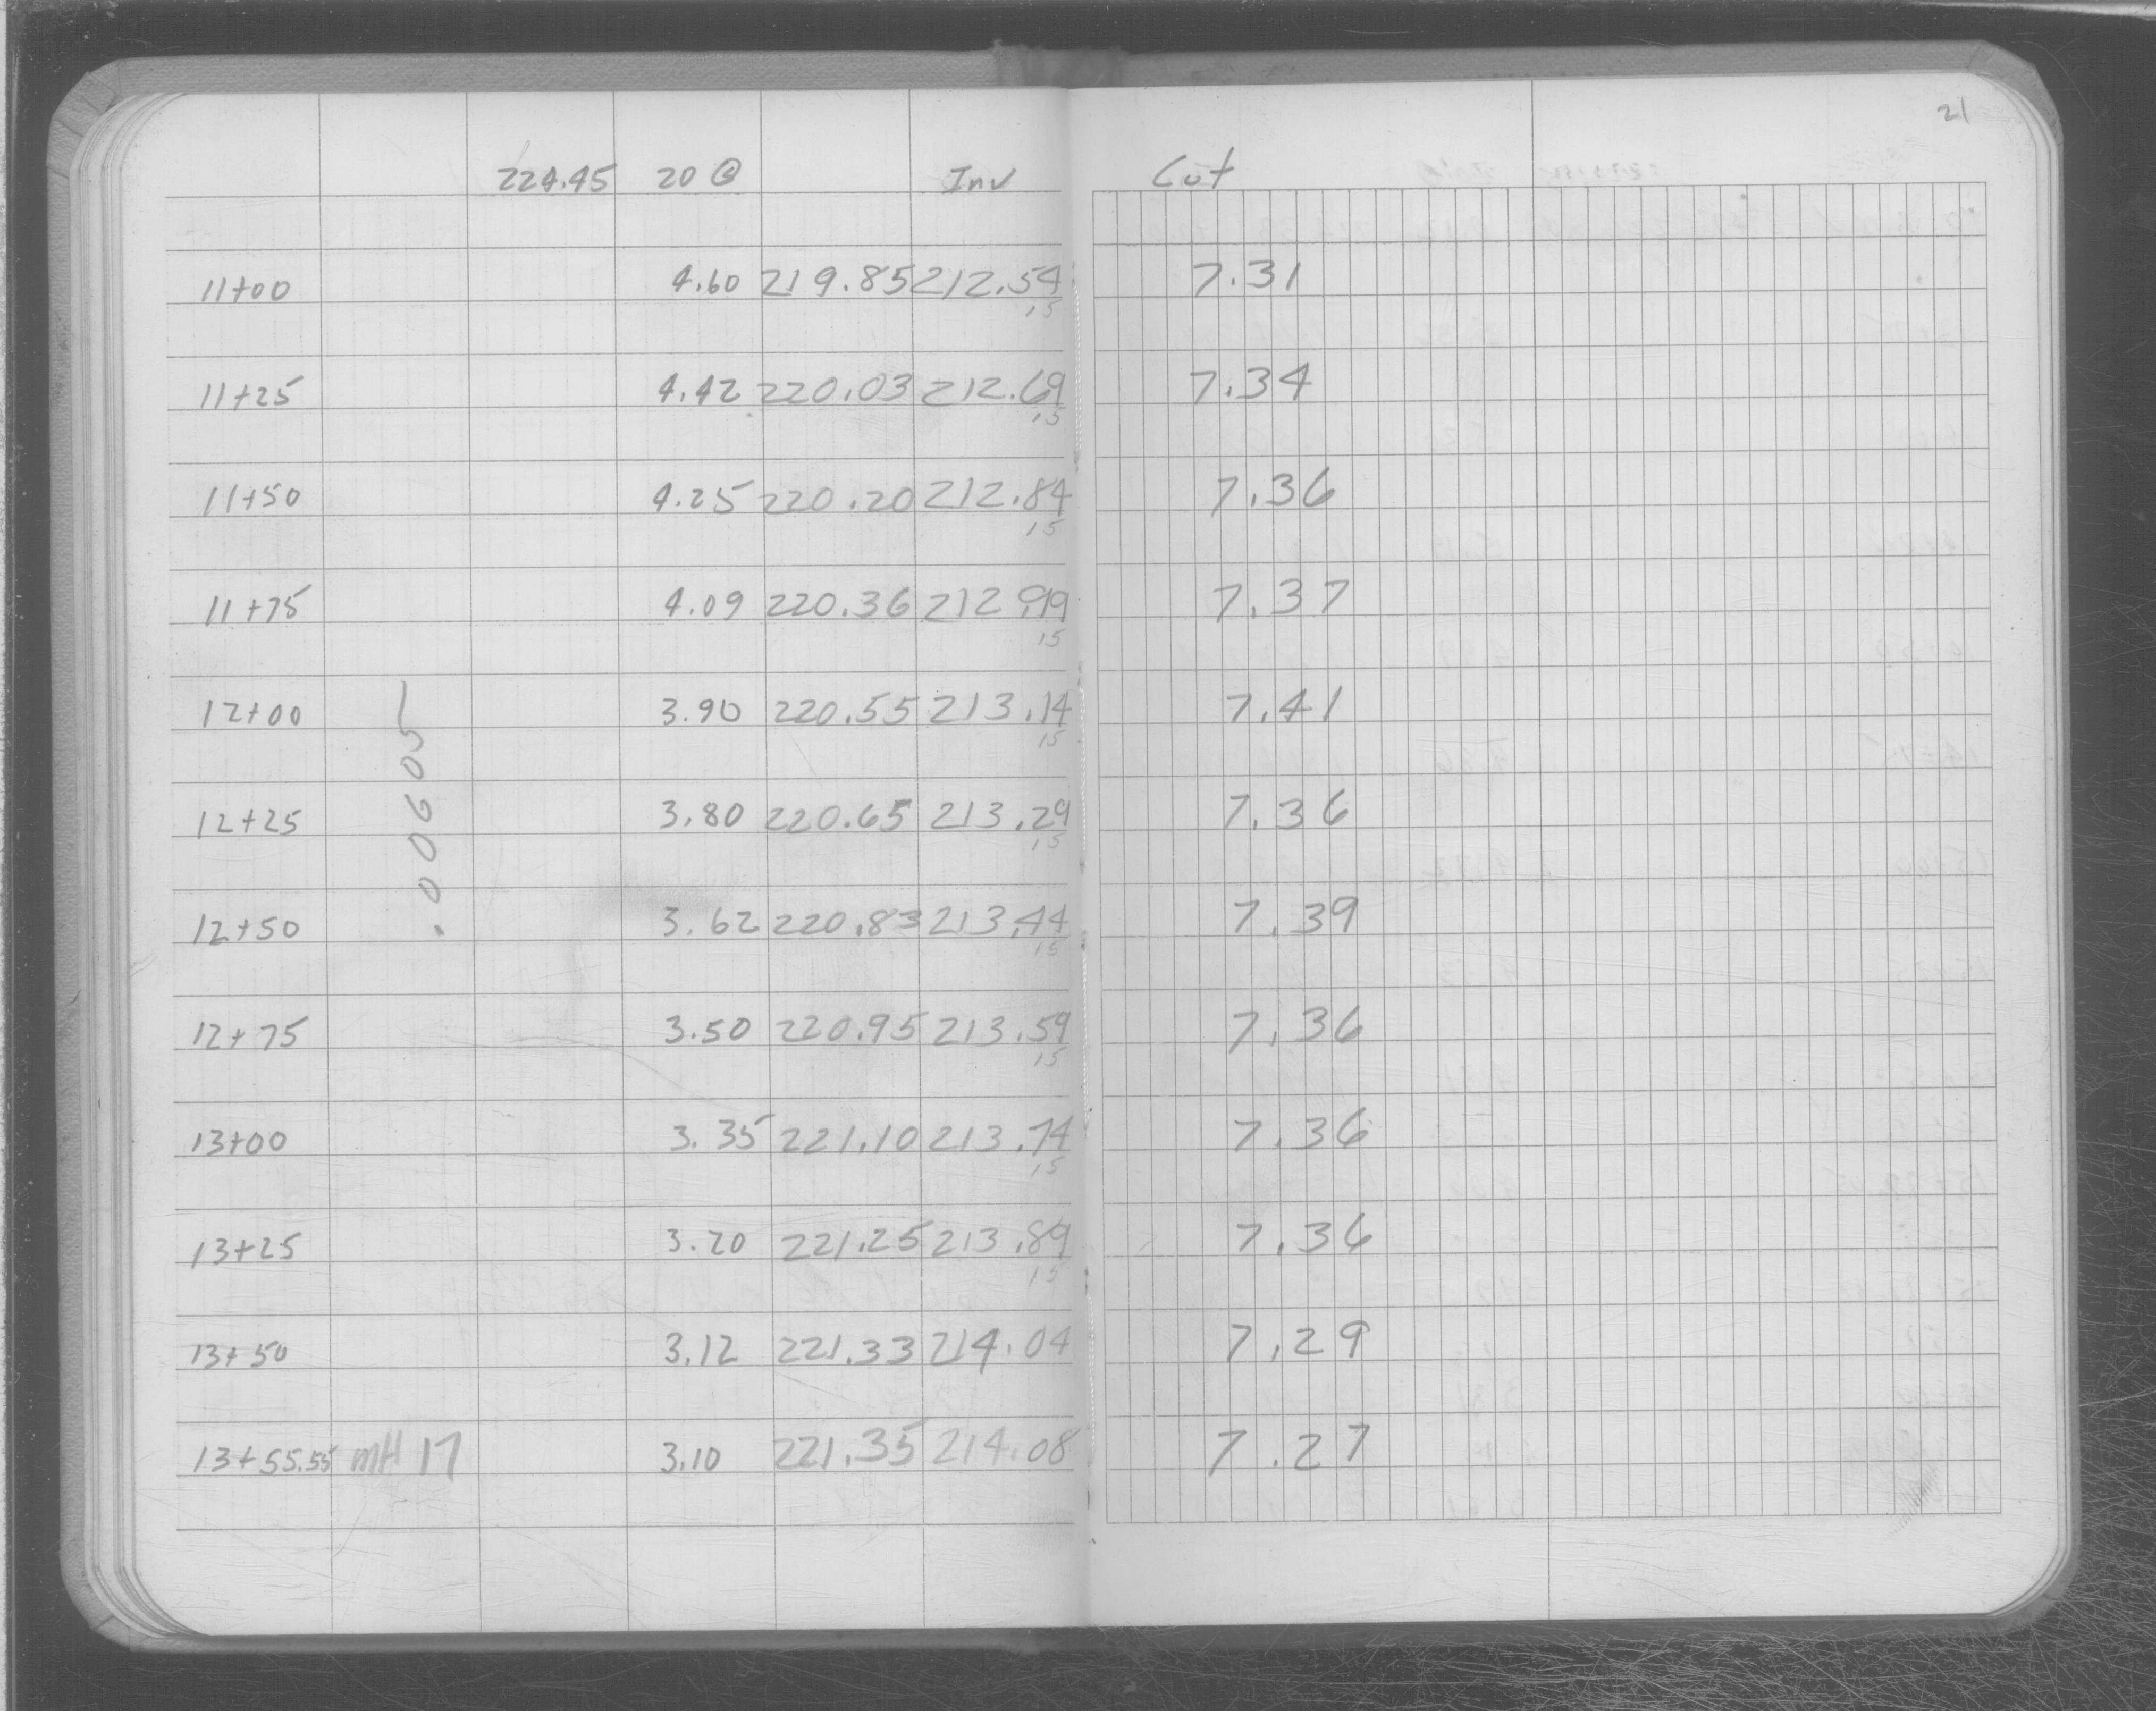 21
224.45 20 @ Inv Cut
11+00 4.60 219.85 212.54 7.31
.15
11+25 4.42 220.03 212.69 7.34
.15
11+50 4.25 220.20 212.84 7.36
.15
11+75 4.09 220.36 212.99 7.37
.15
12+00 3.90 220.55 213.14 7.41
.15
.00605
12+25 3.80 220.65 213.29 7.36
.15
12+50 3.62 220.83 213.44 7.39
.15
12+75 3.50 220.95 213.59 7.36
.15
13+00 3.35 221.10 213.74 7.36
.15
13+25 3.20 221.25 213.89 7.36
.15
13+50 3.12 221.33 214.04 7.29
13+55.55 MH 17 3.10 221.35 214.08 7.27